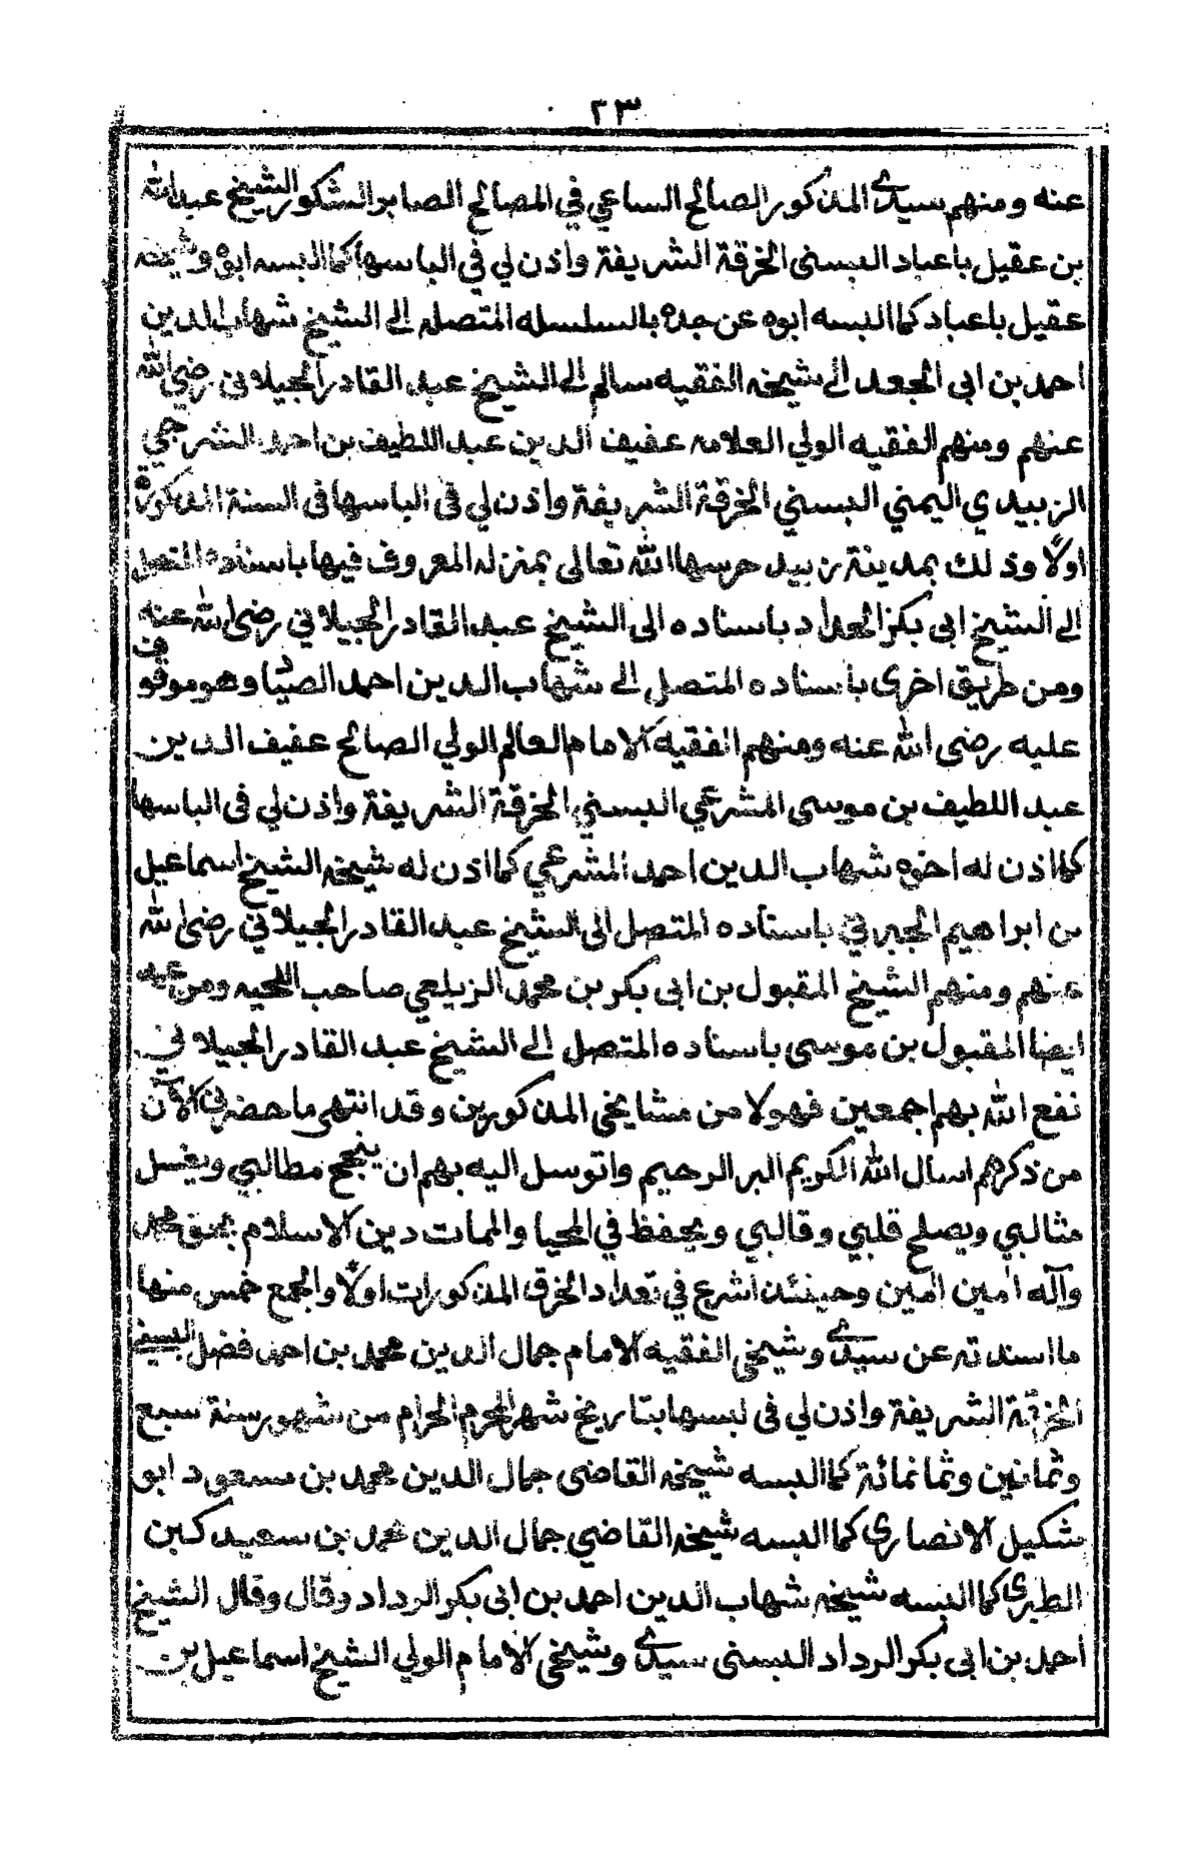 ٢٣
عنه ومنهم سيدى المذكور الصالح الساعي في المصالح الصابر الشكور الشيخ عبد الله
بن عقيل باعباد البسنى الخرقة الشريفة واذن لي في الباسها كما البسه ابوه وشيخه
عقيل باعباد كما البسه ابوه عن جده بالسلسله المتصله الى الشيخ شهاب الدين
احمد بن ابى الجعد الى شيخه الفقيه سالم الى الشيخ عبد القادر الجيلانى رضي الله
عنهم ومنهم الفقيه الولي العلامه عفيف الدين عبد اللطيف بن احمد الشرجي
الزبيدي اليمني البسني الخرقة الشريفة واذن لي فى الباسها فى السنة المذكورة
اولاً وذلك بمدينة زبيد حرسها الله تعالى بمنزله المعروف فيها باسناده المتصل
الى الشيخ ابى بكر الحداد باسناده الى الشيخ عبد القادر الجيلاني رضى الله عنه
ومن طريق اخرى باسناده المتصل الى شهاب الدين احمد الصياد وهو موقوف
عليه رضى الله عنه ومنهم الفقيه الامام العالم الولي الصالح عفيف الدين
عبد اللطيف بن موسى المشرعي البسني الخرقة الشريفة واذن لي فى الباسها
كما اذن له اخوه شهاب الدين احمد المشرعي كما اذن له شيخه الشيخ اسماعيل
بن ابراهيم الجبرتي باسناده المتصل الى الشيخ عبد القادر الجيلاني رضى الله
عنهم ومنهم الشيخ المقبول بن ابى بكر بن محمد الزيلعي صاحب اللحيه ومن
ايضا المقبول بن موسى باسناده المتصل الى الشيخ عبد القادر الجيلاني
نفع الله بهم اجمعين فهولا من مشايخي المذكورين وقد انتهى ما حضرني الآن
من ذكرهم اسال الله الكريم البر الرحيم واتوسل اليه بهم ان ينجح مطالبي ويغسل
مثالبي ويصلح قلبي وقالبي ويحفظ في المحيا والممات دين الاسلام بحق محمد
وآله امين امين وحينئذ اشرع في تعداد الخرق المذكورات اولاً والجمع خمس منها
ما اسندته عن سيدى وشيخى الفقيه الامام جمال الدين محمد بن احمد فضل البسني
الخرقة الشريفة واذن لي فى لبسها بتاريخ شهر المحرم الحرام من شهور سنة سبع
وثمانين وثمانمائة كما البسه شيخه القاضى جمال الدين محمد بن مسعود ابو
شكيل الانصارى كما البسه شيخه القاضي جمال الدين محمد بن سعيد كبن
الطبرى كما البسه شيخه شهاب الدين احمد بن ابى بكر الرداد وقال وقال الشيخ
احمد بن ابى بكر الرداد البسنى سيدى وشيخى الامام الولي الشيخ اسماعيل بن